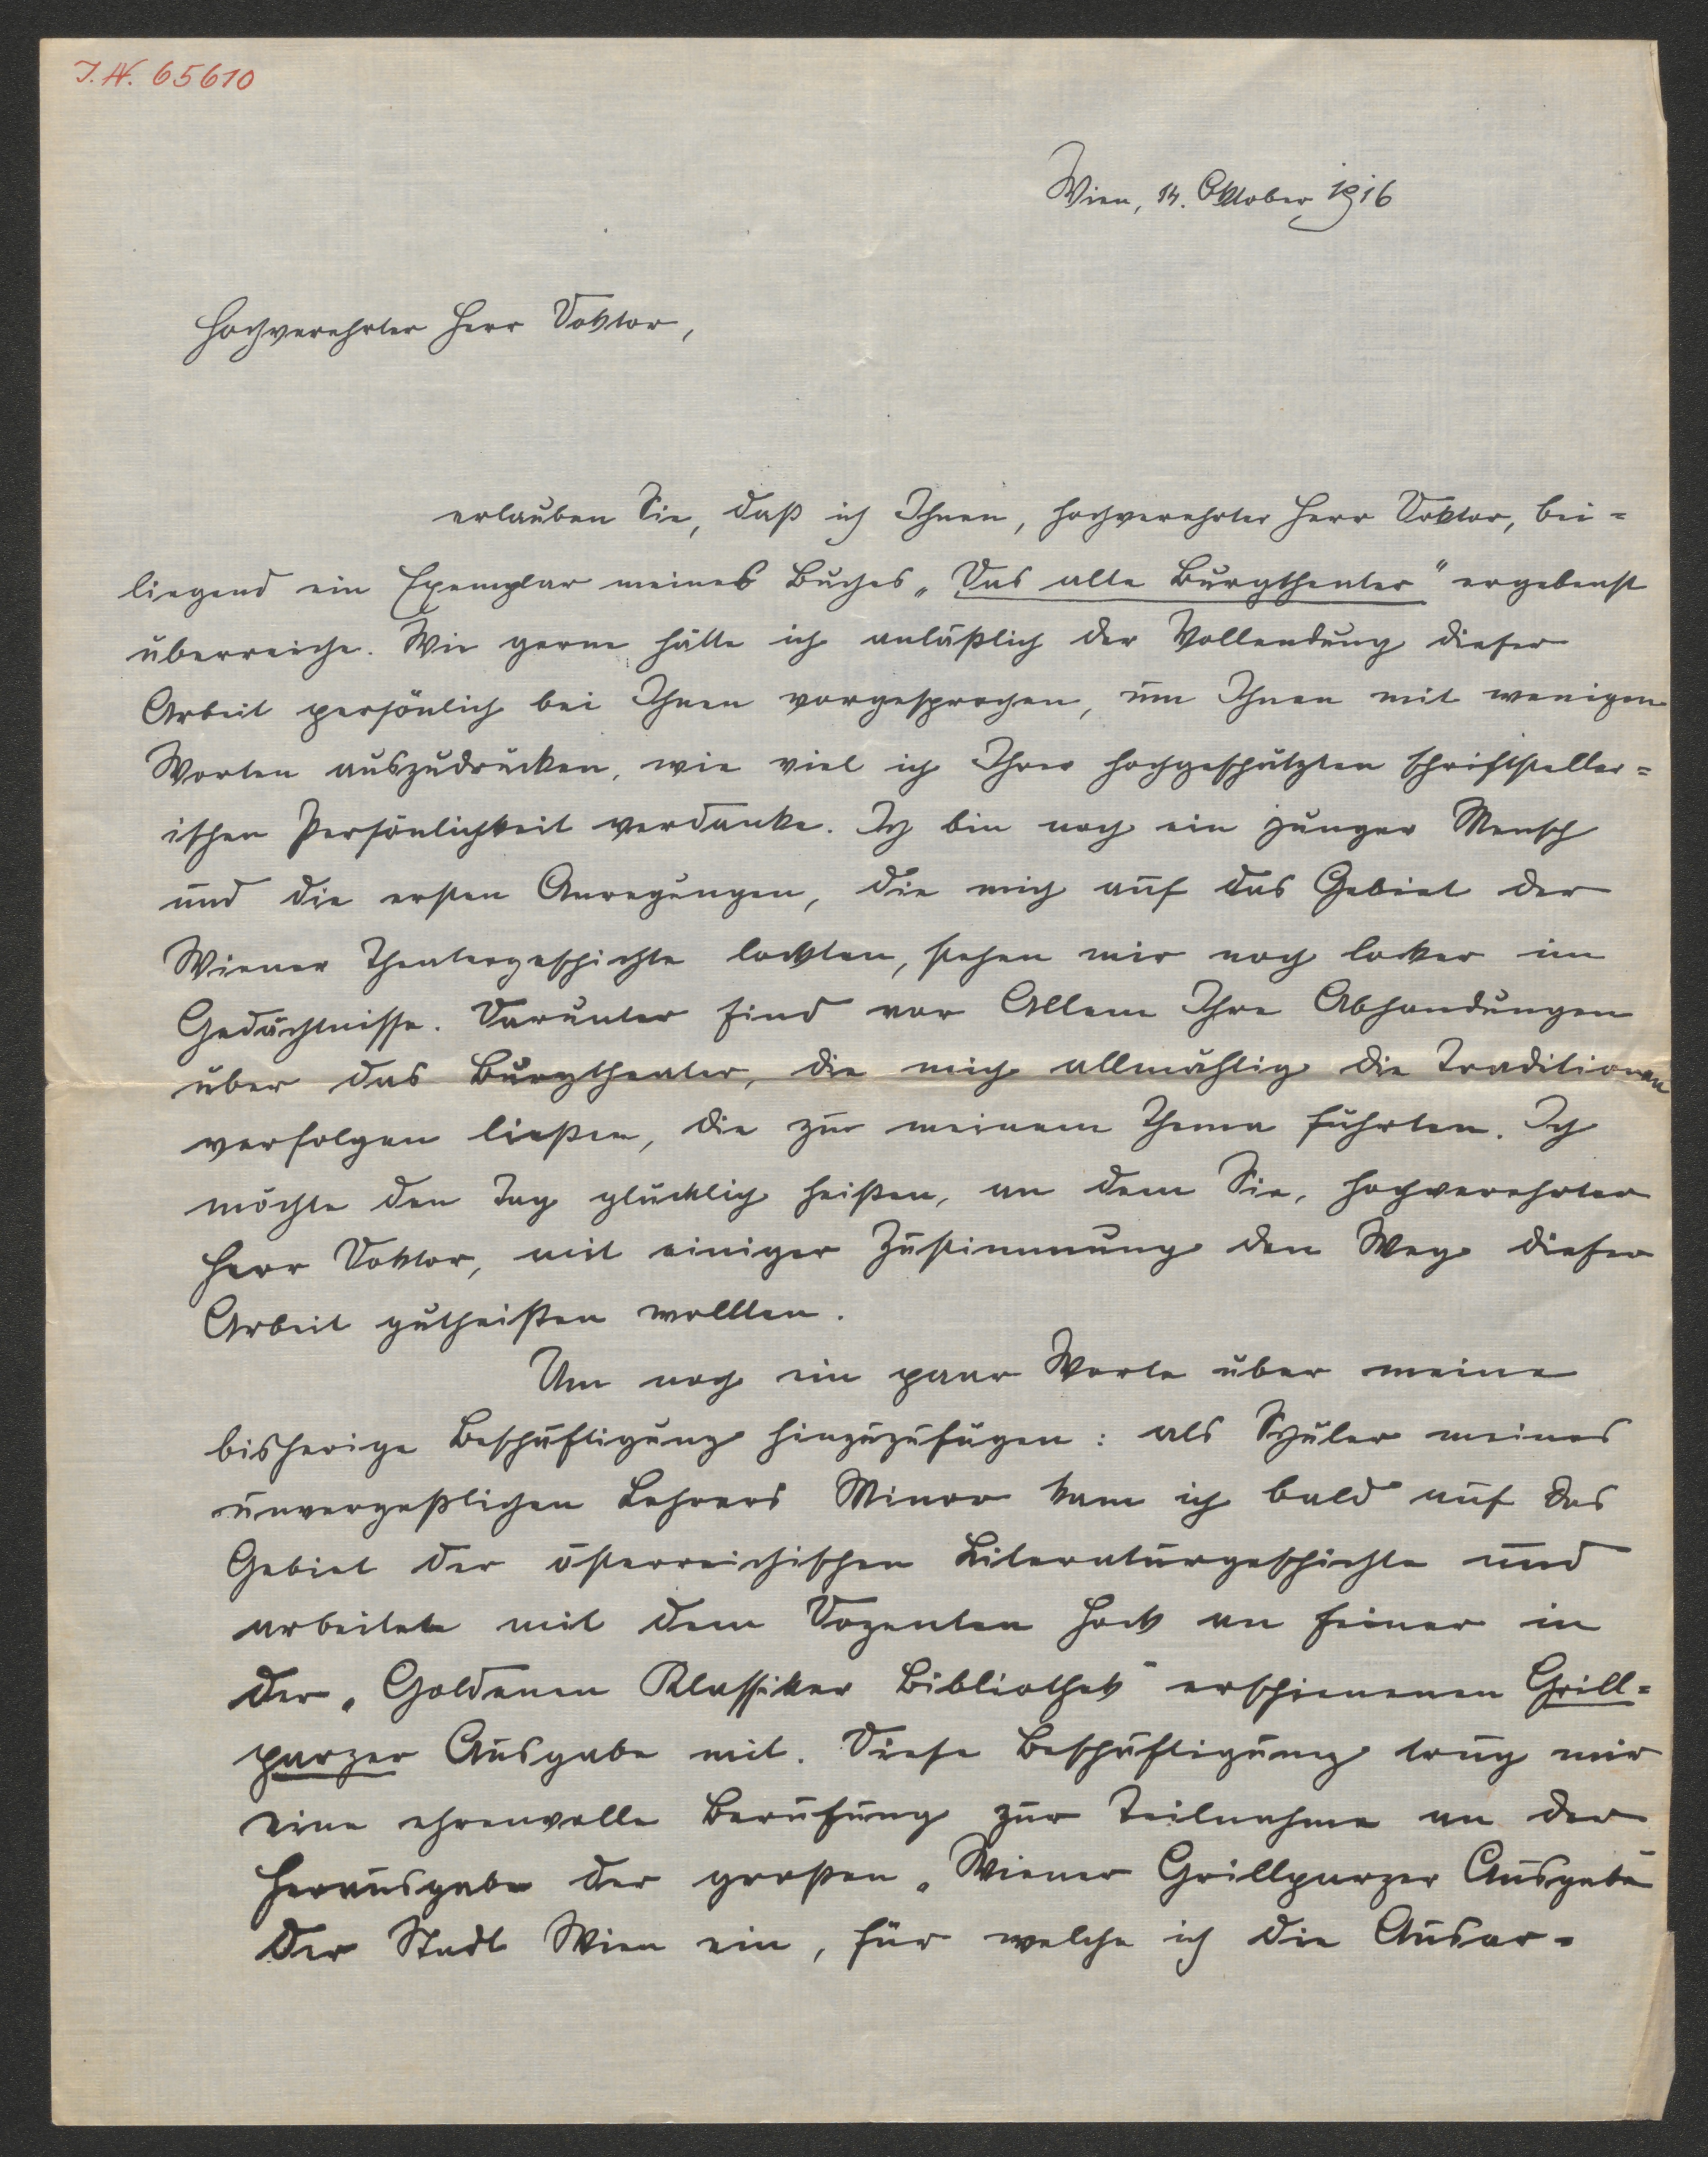 I.N. 65610
Wien, 14. Oktober 1916
Hochverehrter Herr Doktor,
erlauben Sie, daß ich Ihnen, hochverehrter Herr Doktor, bei=
liegend ein Exemplar meines Buches „Das alte Burgtheater" ergebenst
überreiche. Wie gerne hätte ich anläßlich der Vollendung dieser
Arbeit persönlich bei Ihnen vorgesprochen, um Ihnen mit wenigen
Worten auszudrücken, wie viel ich Ihrer hochgeschätzten schriftsteller=
ischen Persönlichkeit verdanke. Ich bin noch ein junger Mensch
und die ersten Anregungen, die mich auf das Gebiet der
Wiener Theatergeschichte lockten, stehen mir noch locker im
Gedächtnisse. Darunter sind vor Allem Ihre Abhandungen
über das Burgtheater, die mich allmählig die Traditionen
verfolgen ließen, die zu meinem Thema führten. Ich
möchte den Tag glücklich heißen, an dem Sie, hochverehrter
Herr Doktor, mit einiger Zustimmung den Weg dieser
Arbeit gutheißen wollten.
Um noch ein paar Worte über meine
bisherige Beschäftigung hinzuzufügen: als Schüler meines
unvergeßlichen Lehrers Minor kam ich bald auf das
Gebiet der österreichischen Literaturgeschichte und
arbeitete mit dem Dozenten Hock an seiner in
der „Goldenen Klassiker Bibliothek" erschienenen Grill=
parzer Ausgabe mit. Diese Beschäftigung trug mir
eine ehrenvolle Berufung zur Teilnahme an der
Herausgabe der großen „Wiener Grillparzer Ausgabe"
der Stadt Wien ein, für welche ich die Ausar=